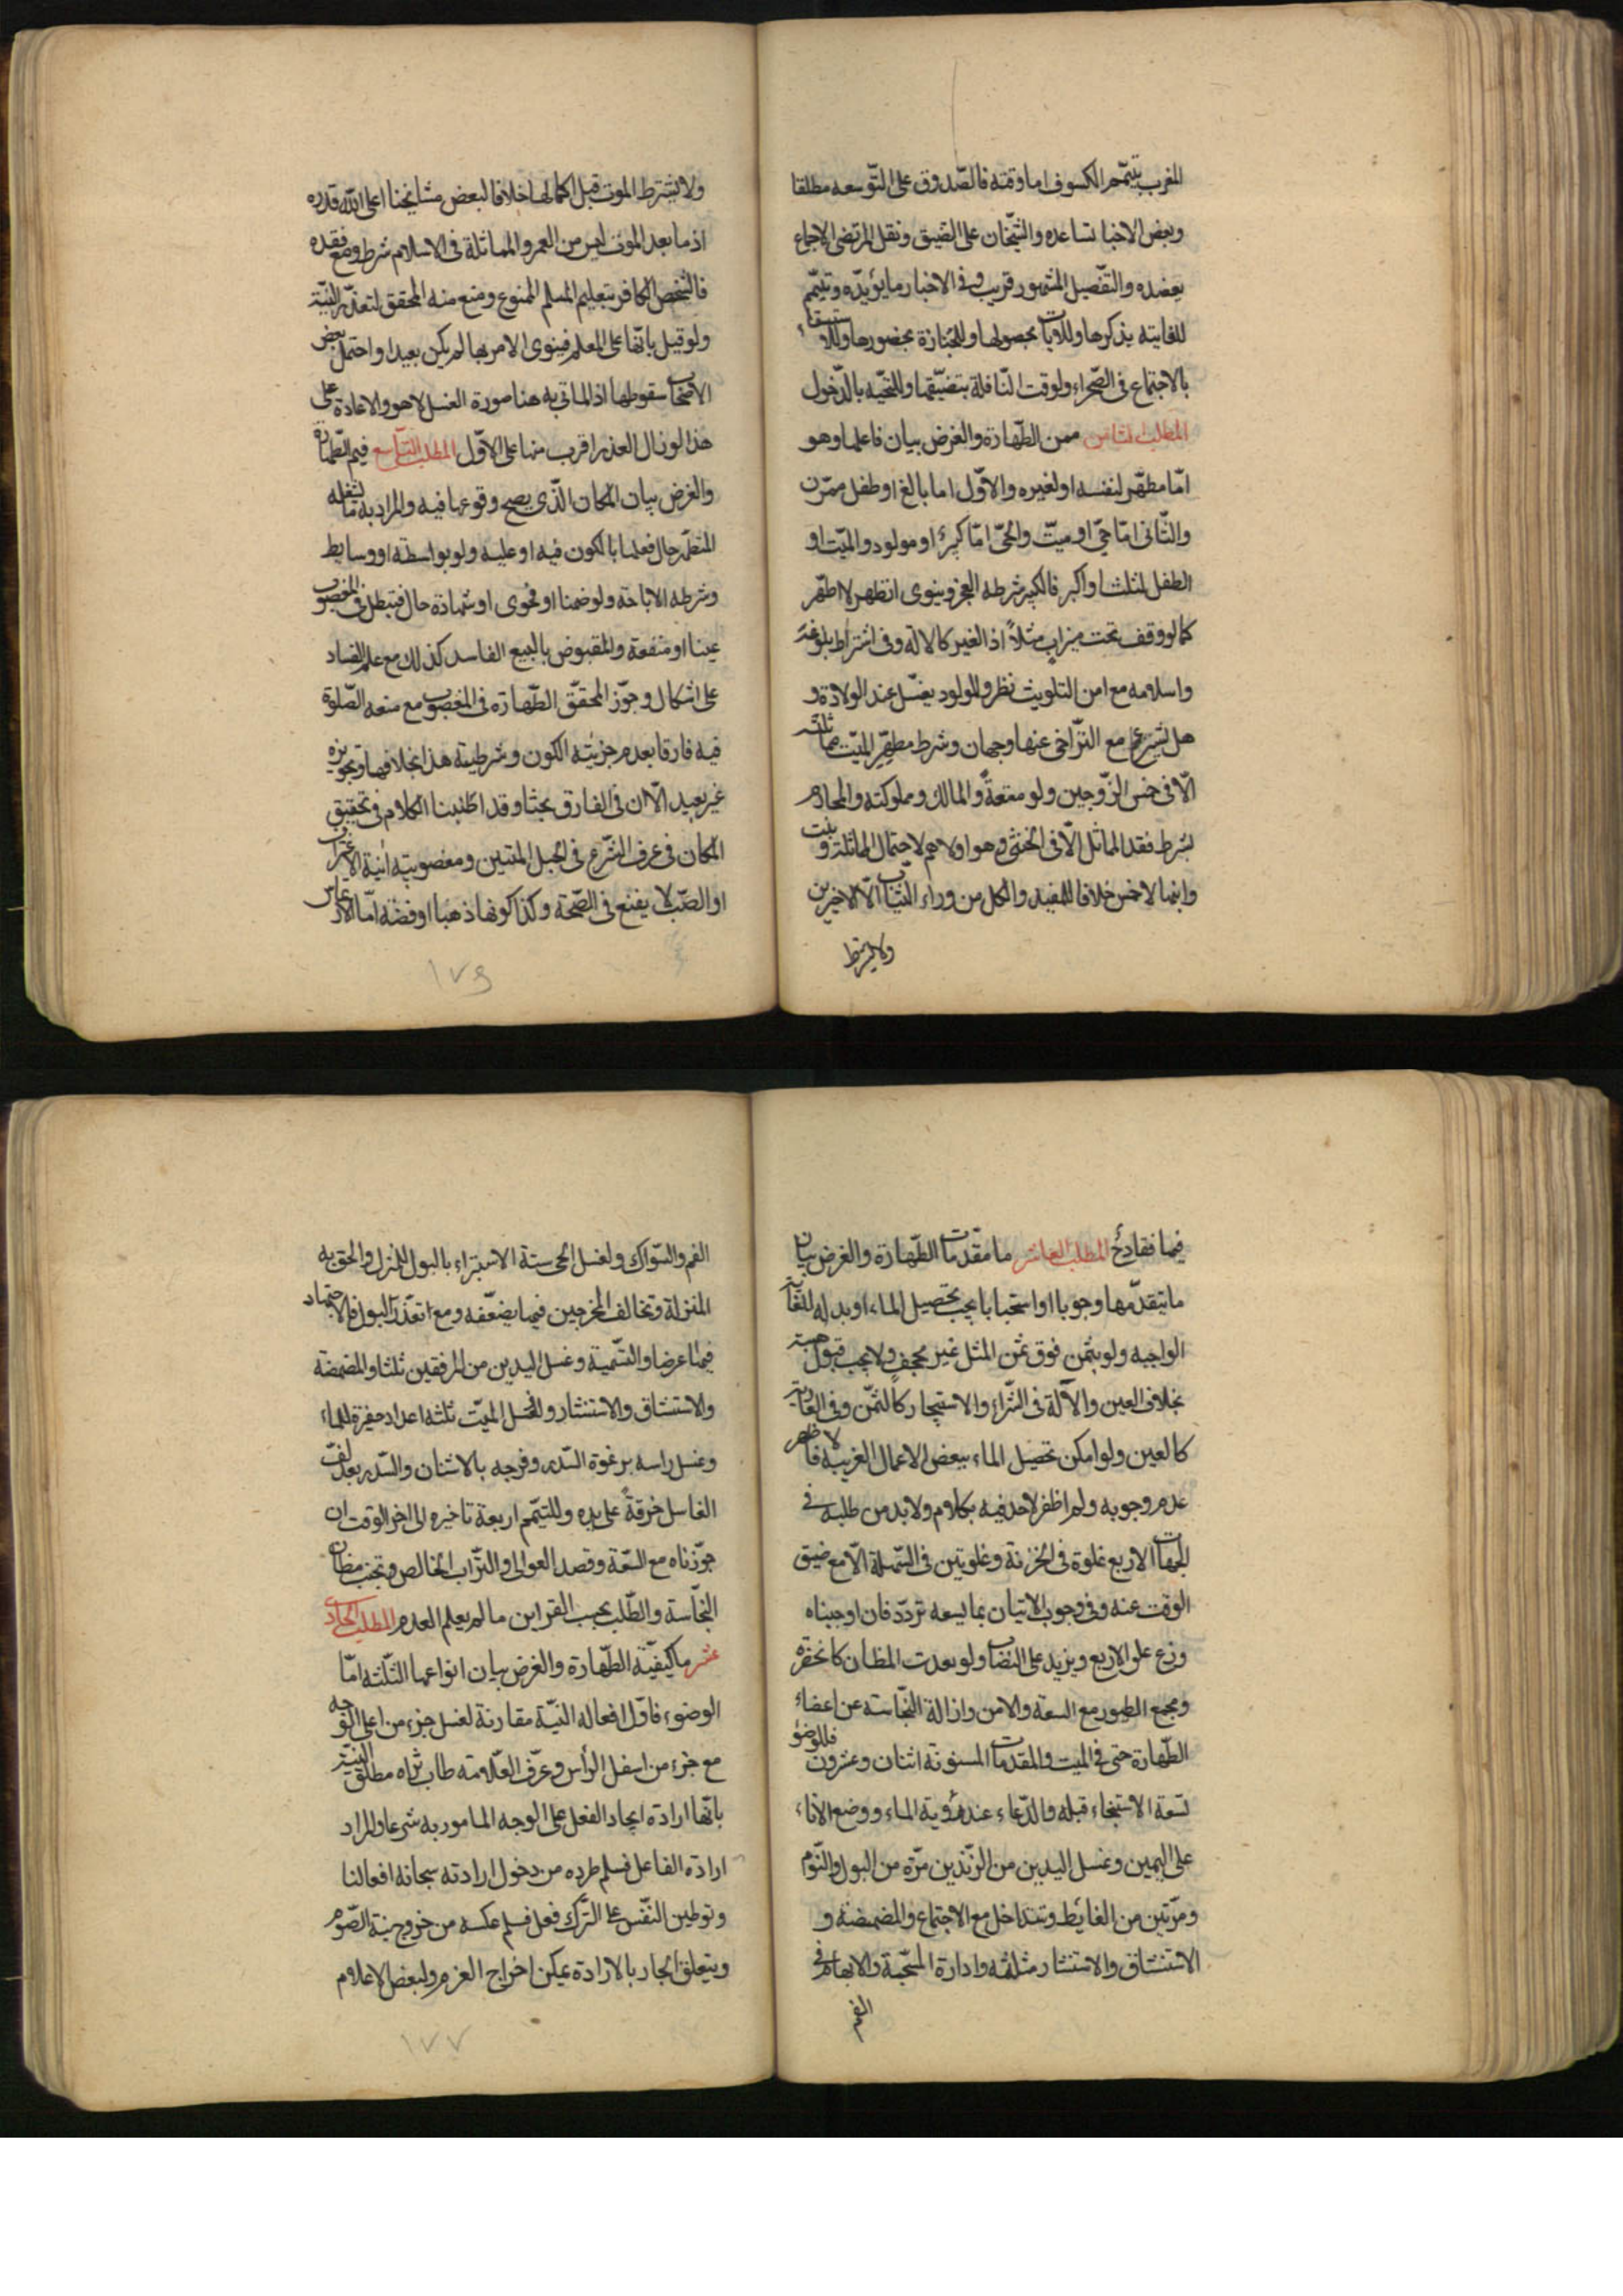 المغرب بتيمم الكسوف اما وقته فالصدوق على التوسعه مطلقا
وبعض الاخبار تساعده والشيخان على الضيق ونقل المرتضى الاجماع
يعضده والتفصيل المشهور قريب وفي الاخبار ما يؤيده وتيمم
للفايته بذكرها وللايات بحصولها وللجنازة بحضورها وللاستسقاء
بالاجتماع في الصحراء ولوقت النافلة بتضيقها وللتحيه بالدخول
المطلب الثامن ممن الطهارة والغرض بيان فاعلها وهو
اما مطهر لنفسه او لغيره والاول اما بالغ او طفل ممرن
والثاني اما حي او ميت والحي اما كبير او مولود والميت او
الطفل لثلث او اكبر فالكبير شرطه العجز وينوى اتطهر لا اطهر
كما لو وقف تحت ميزاب مثلاً اذ الغير كالالة وفي اشتراط بلوغه
واسلامه مع امن التلويث نظر وللولود يغسل عند الولادة و
هل يشرع مع التراخي عنها وجهان وشرط مطهر الميت مماثلته
الا في خمس الزوجين ولو متعة والمالك ومملوكته والمحارم
بشرط فقد المماثل الا في الخنثى وهو اولاهم لاحتمال المماثلة وبنت
وابنها لاخمس خلافا للمفيد والكل من وراء الثياب الا الاخيرين
ولا يشترط
ولا يشترط الموت قبل اكمالها خلافا لبعض مشايخنا اعلى الله قدره
اذ ما بعد الموت ليس من العمر والمماثلة في الاسلام شرط ومع فقده
فالشخص الكافر بتعليم المسلم الممنوع ومنع منه المحقق لتعذر النية
ولو قيل بانها على المعلم فينوى الامر بها لم يكن بعيدا واحتمل بعض
الاصحاب سقوطها اذ الماتي به هنا صورة الغسل لا هو والاعادة على
هذا لو زال العذر اقرب منها على الاول المطلب التاسع فيم الطهارة
والغرض بيان المكان الذي يصح وقوعها فيه والمراد به ما يشغله
المتطهر حال فعلها بالكون فيه او عليه ولو بواسطة او وسايط
وشرطه الاباحة ولو ضمنا او فحوى او شهادة حال فتبطل في المغصوب
عينا او منفعة والمقبوض بالبيع الفاسد كذلك مع علم الفساد
على اشكال وجوز المحقق الطهارة في المغصوب مع منعه الصلوة
فيه فارقا بعدم جزئية الكون وشرطيته هنا بخلافها وتجويزه
غير بعيد الا ان في الفارق بحثا وقد اطنبنا الكلام في تحقيق
المكان في عرف الشرع في الحبل المتين ومغصوبية انية الاغتراف
او الصب لا يقنع في الصحة وكذا كونها ذهبا او فضة اما الارتماس
١٧٦
فيها فقادح المطلب العاشر ما مقدمات الطهارة والغرض بيان
ما يتقدمها وجوبا او استحبابا يجب تحصيل الماء او بدله للغاية
الواجبه ولو بثمن فوق ثمن المثل غير مجحف ولا يجب قبول هبته
بخلاف العين والآلة في الشراء والاستيجار كالثمن وفي العارية
كالعين ولو امكن تحصيل الماء ببعض الاعمال الغريبه فالاظهر
عدم وجوبه ولم اظفر لاحد فيه بكلام ولا بد من طلبه في
الجهات الاربع غلوة في الحزنة وغلوتين في السهلة الا مع ضيق
الوقت عنه وفي وجوب الاتيان بما يسعه تردد فان اوجبناه
وزع على الاربع ويزيد على النصاب ولو بعدت المظان كالخضرة
ومجمع الطيور مع السعة والامن وازالة النجاسة عن اعضاء
الطهارة حتى في الميت والمقدمات المسنونة اثنان وعشرون فللوضوء
تسعة الاستنجاء قبله والدعاء عند رؤية الماء ووضع الاناء
على اليمين وغسل اليدين من الزندين مرة من البول والنوم
ومرتين من الغايط وتتداخل مع الاجتماع والمضمضة و
الاستنشاق والاستنثار مثلثه وادارة المسبحة والابهام في
الفم
الفم والسواك ولغسل الحي ستة الاستبراء بالبول للمنزل والحق به
المنزلة وتخالف المخرجين فيها يضعفه ومع تعذر البول فالاجتهاد
فيها عرضا والتسمية وغسل اليدين من المرفقين ثلثا والمضمضة
والاستنشاق والاستنثار ولغسل الميت ثلثه اعداد حفيرة للماء
وغسل راسه برغوة السدر وفرجه بالاشنان والسدر بعد لف
الغاسل خرقةً على يده وللتيمم اربعة تاخيره الى اخر الوقت ان
جوزناه مع السعة وقصد العوالي والتراب الخالص وتجنب مظان
النجاسة والطلب بحسب القراين ما لم يعلم العدم المطلب الحادي
عشر ما كيفية الطهارة والغرض بيان انواعها الثلثه اما
الوضوء فاول افعاله النية مقارنة لغسل جزء من اعلى الوجه
مع جزء من اسفل الرأس وعرف العلامة طاب ثراه مطلق النية
بانها ارادة ايجاد الفعل على الوجه المامور به شرعا والمراد
ارادة الفاعل فسلم طرده من دخول ارادته سبحانه افعالنا
وتوطين النفس على الترك فعل فسلم عكسه من خروج نية الصوم
وبتعلق الجار بالارادة يمكن اخراج العزم ولبعض الاعلام
١٧٧